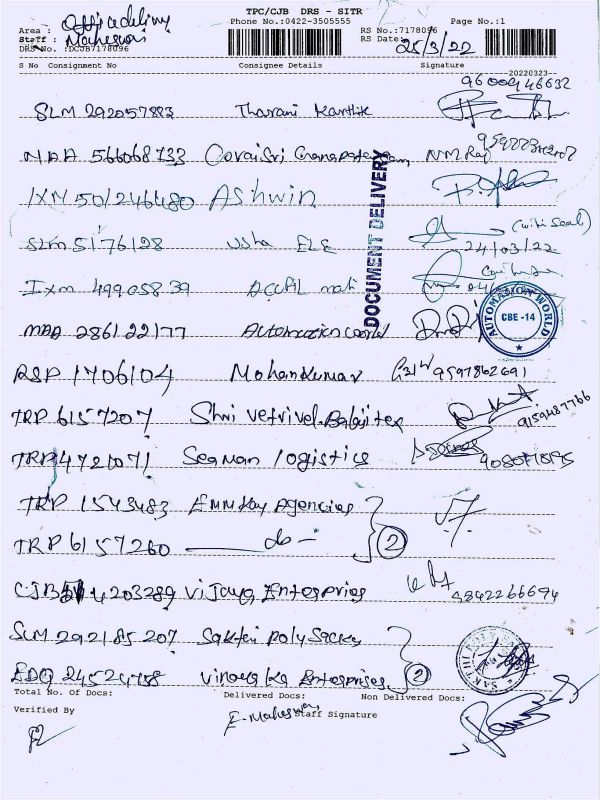 TPC/CJB DRS - SITR
Phone No.:0422-3505555
Page No.:1
Area :
Staff : Maheswari
DRS No.:DCJB7178096
RS No.:7178096
RS Date: 25/3/22
S No Consignment No Consignee Details Signature
20220323
9600946632
SLM 292057883 Tharani Karthik
MAA 566068733 Covai Sri
IXM 501246480 Ashwin
SLM 5176128 Usha ELE (with seal)
24/03/22
IXM 49905839
DOCUMENT DELIVERY
MAA 286122177 Automation world
AUTOMATION WORLD
CBE -14
RSP 1706104 Mohankumar 9597862691
TRP 6157207 Shri Vetrivel
9159487766
TRP 4721071 Seaman logistics
TRP 1543483 Emmkay Agencies
TRP 6157260 — do — 2
CJB 4203289 Vijaya Enterprises 9842266694
SLM 292185207 Sakthi Poly Sacks
EDQ Vinayaka Enterprises 2
Total No. Of Docs: Delivered Docs: Non Delivered Docs:
Verified By E. Maheswari Staff Signature